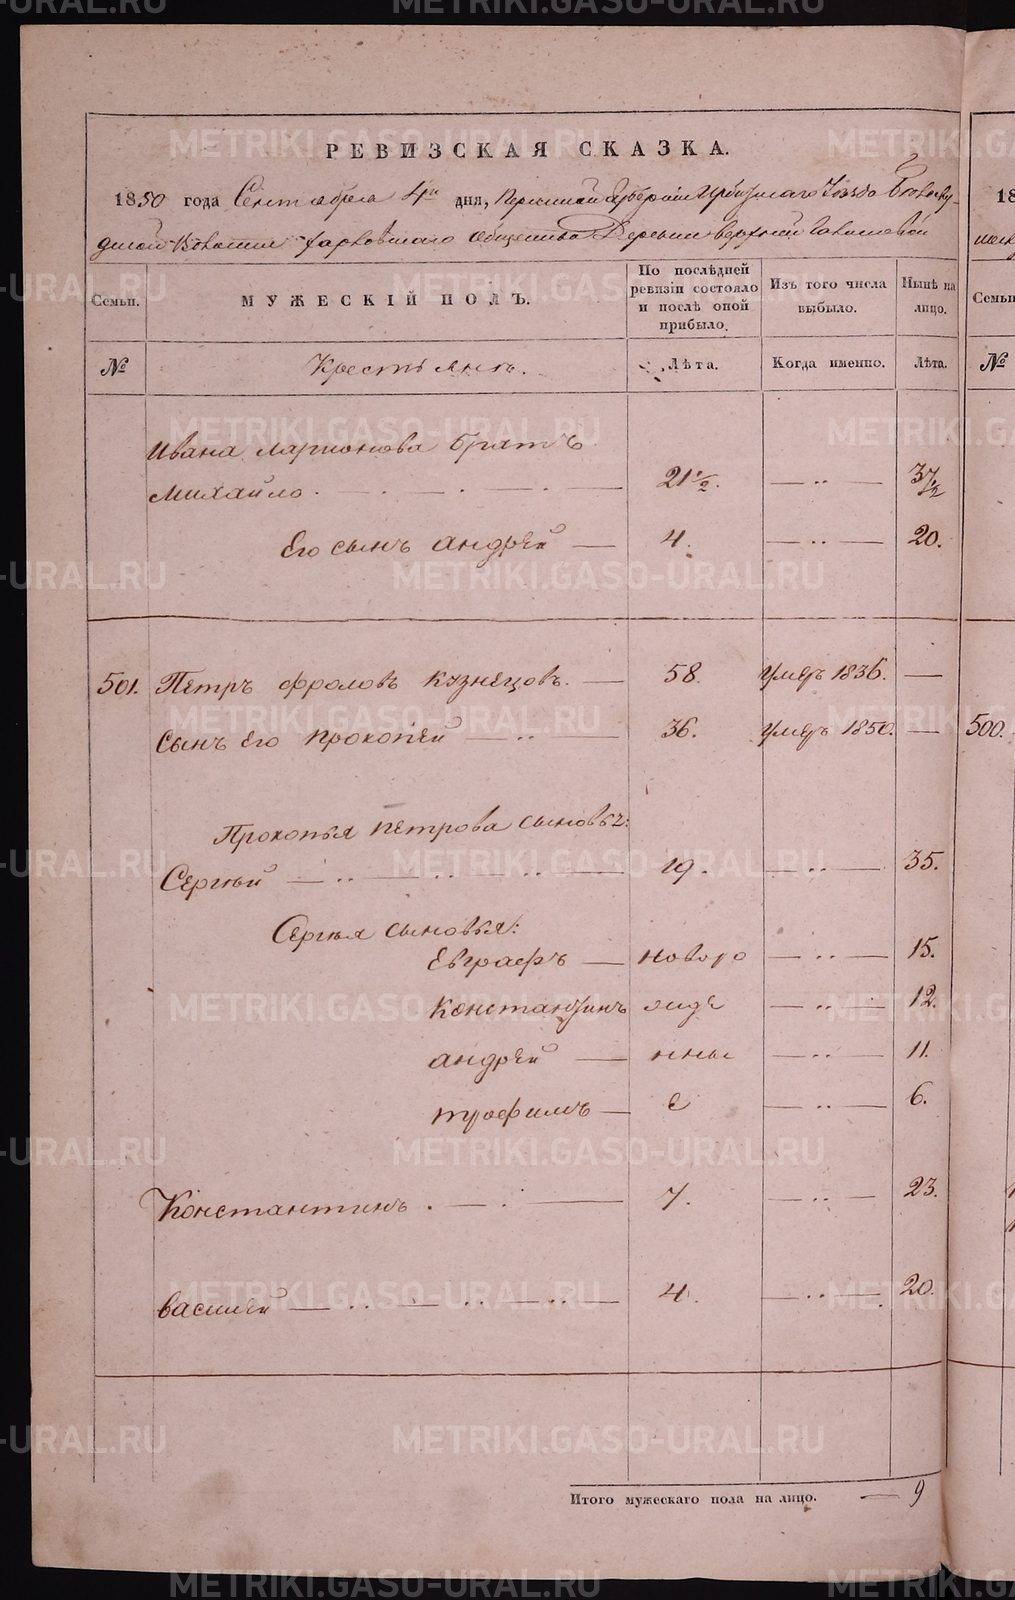 РЕВИЗСКАЯ СКАЗКА.
1850 года Сентября 4го дня, Пермской Губернии Ирбитского Уезда
волости общества Деревни верхней
Семьи. МУЖЕСКІЙ ПОЛЪ. По послѣдней ревизіи состояло и послѣ оной прибыло. Изъ того числа выбыло. Нынѣ на лицо.
№ Крестьянъ. Лѣта. Когда именно. Лѣта.
Ивана Ларионова братъ
Михайло. 21 1/2. — „ — 37 1/2
Его сынъ андрей — 4. — „ — 20.
501. Петръ фроловъ кузнецовъ. — 58. умеръ 1836. —
сынъ его прокопей — „ — 36. умеръ 1850. —
Прокопья петрова сыновья:
Сергѣй — „ — 19. — „ — 35.
Сергѣя сыновья:
Евграфъ — новоро — „ — 15.
Константинъ жде — „ — 12.
андрей — нны — „ — 11.
трофимъ — е — „ — 6.
Константинъ . — . — 7. — „ — 23.
василей — „ — „ — 4. — „ — 20.
Итого мужескаго пола на лицо. — 9
18
Семьи
№
500.
METRIKI.GASO-URAL.RU